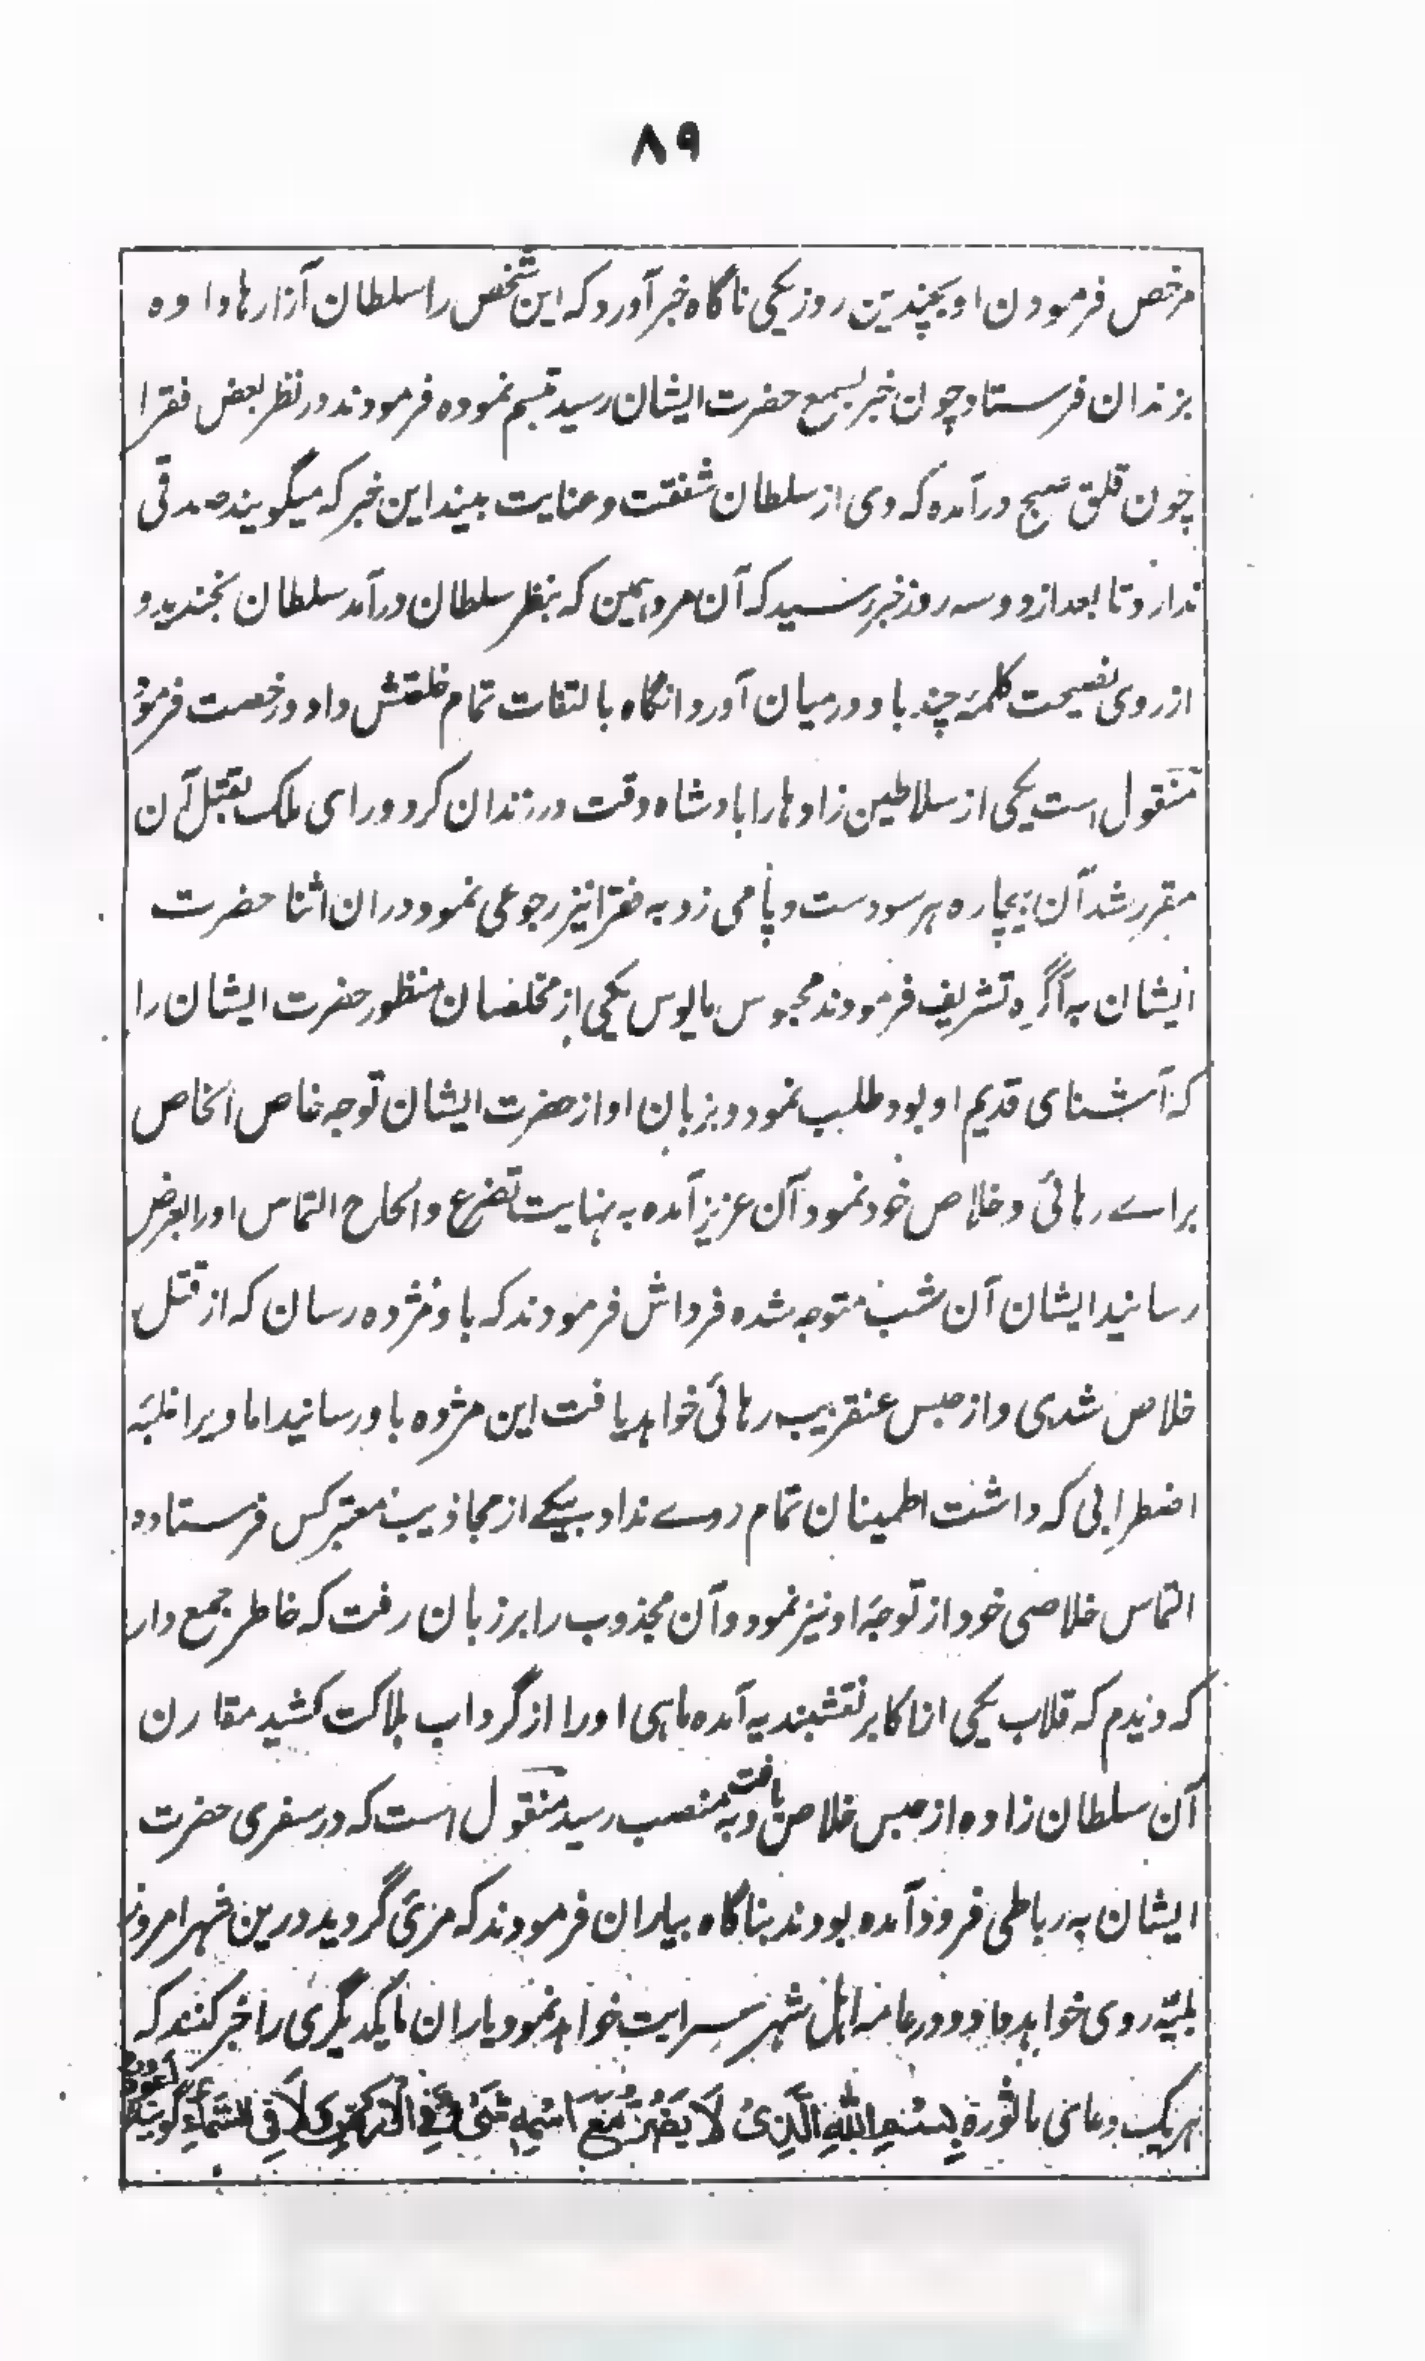 ۸۹
مرخص فرمودن او بچندین روز یکی ناگاه خبر آورد که این شخص را سلطان آزارها داده
بزندان فرستاد چون خبر بسمع حضرت ایشان رسید تبسم نموده فرمودند در نظر بعض فقرا
چون فلق صبح درآمده که وی از سلطان شفقت و عنایت بیند این خبر که میگویند صدقی
ندارد تا بعد از دو سه روز خبر رسید که آن مرد همین که بنظر سلطان درآمد سلطان بخندید و
از روی نصیحت کلمهٔ چند باو درمیان آورد انگاه بالتفات تمام خلعتش داد و رخصت فرمود
منقول است یکی از سلاطین زادها را بادشاه وقت در زندان کرد و رای ملک بقتل آن
مقرر شد آن بیچاره هر سو دست و پا می زد به فقرا نیز رجوعی نمود دران اثنا حضرت
ایشان به آگره تشریف فرمودند محبوس مایوس یکی از مخلصان منظور حضرت ایشان را
که آشنای قدیم او بود طلب نمود و بزبان او از حضرت ایشان توجه خاص الخاص
براے رہائی و خلاص خود نمود آن عزیز آمده به نهایت تضرع و الحاح التماس او را بعرض
رسانید ایشان آن شب متوجه شده فرداش فرمودند که باو مژده رسان که از قتل
خلاص شدی و از حبس عنقریب رہائی خواهد یافت این مژده باو رسانید اما ویرا غلبهٔ
اضطرابی که داشت اطمینان تمام روے نداد بیکے از مجاذیب معتبر کس فرستاد و
التماس خلاصی خود از توجه او نیز نمود و آن مجذوب را بر زبان رفت که خاطر جمع دار
که دیدم که قلاب یکی از اکابر نقشبندیه آمده ماهی او را از گرداب هلاکت کشید مقارن
آن سلطان زاده از حبس خلاص یافت و به منصب رسید منقول است که در سفری حضرت
ایشان به رباطی فرود آمده بودند بناگاه بیاران فرمودند که مرئ گردید درین شهر امروز
بلیّه روی خواهد داد و در عامه اهل شهر سرایت خواهد نمود یاران یکدیگری را خبر کنند که
هریک دعای ماثوره بِسْمِ اللّٰهِ الَّذِیْ لَا یَضُرُّ مَعَ اسْمِهٖ شَیْءٌ فِی الْاَرْضِ وَلَا فِی السَّمَاءِ گویند